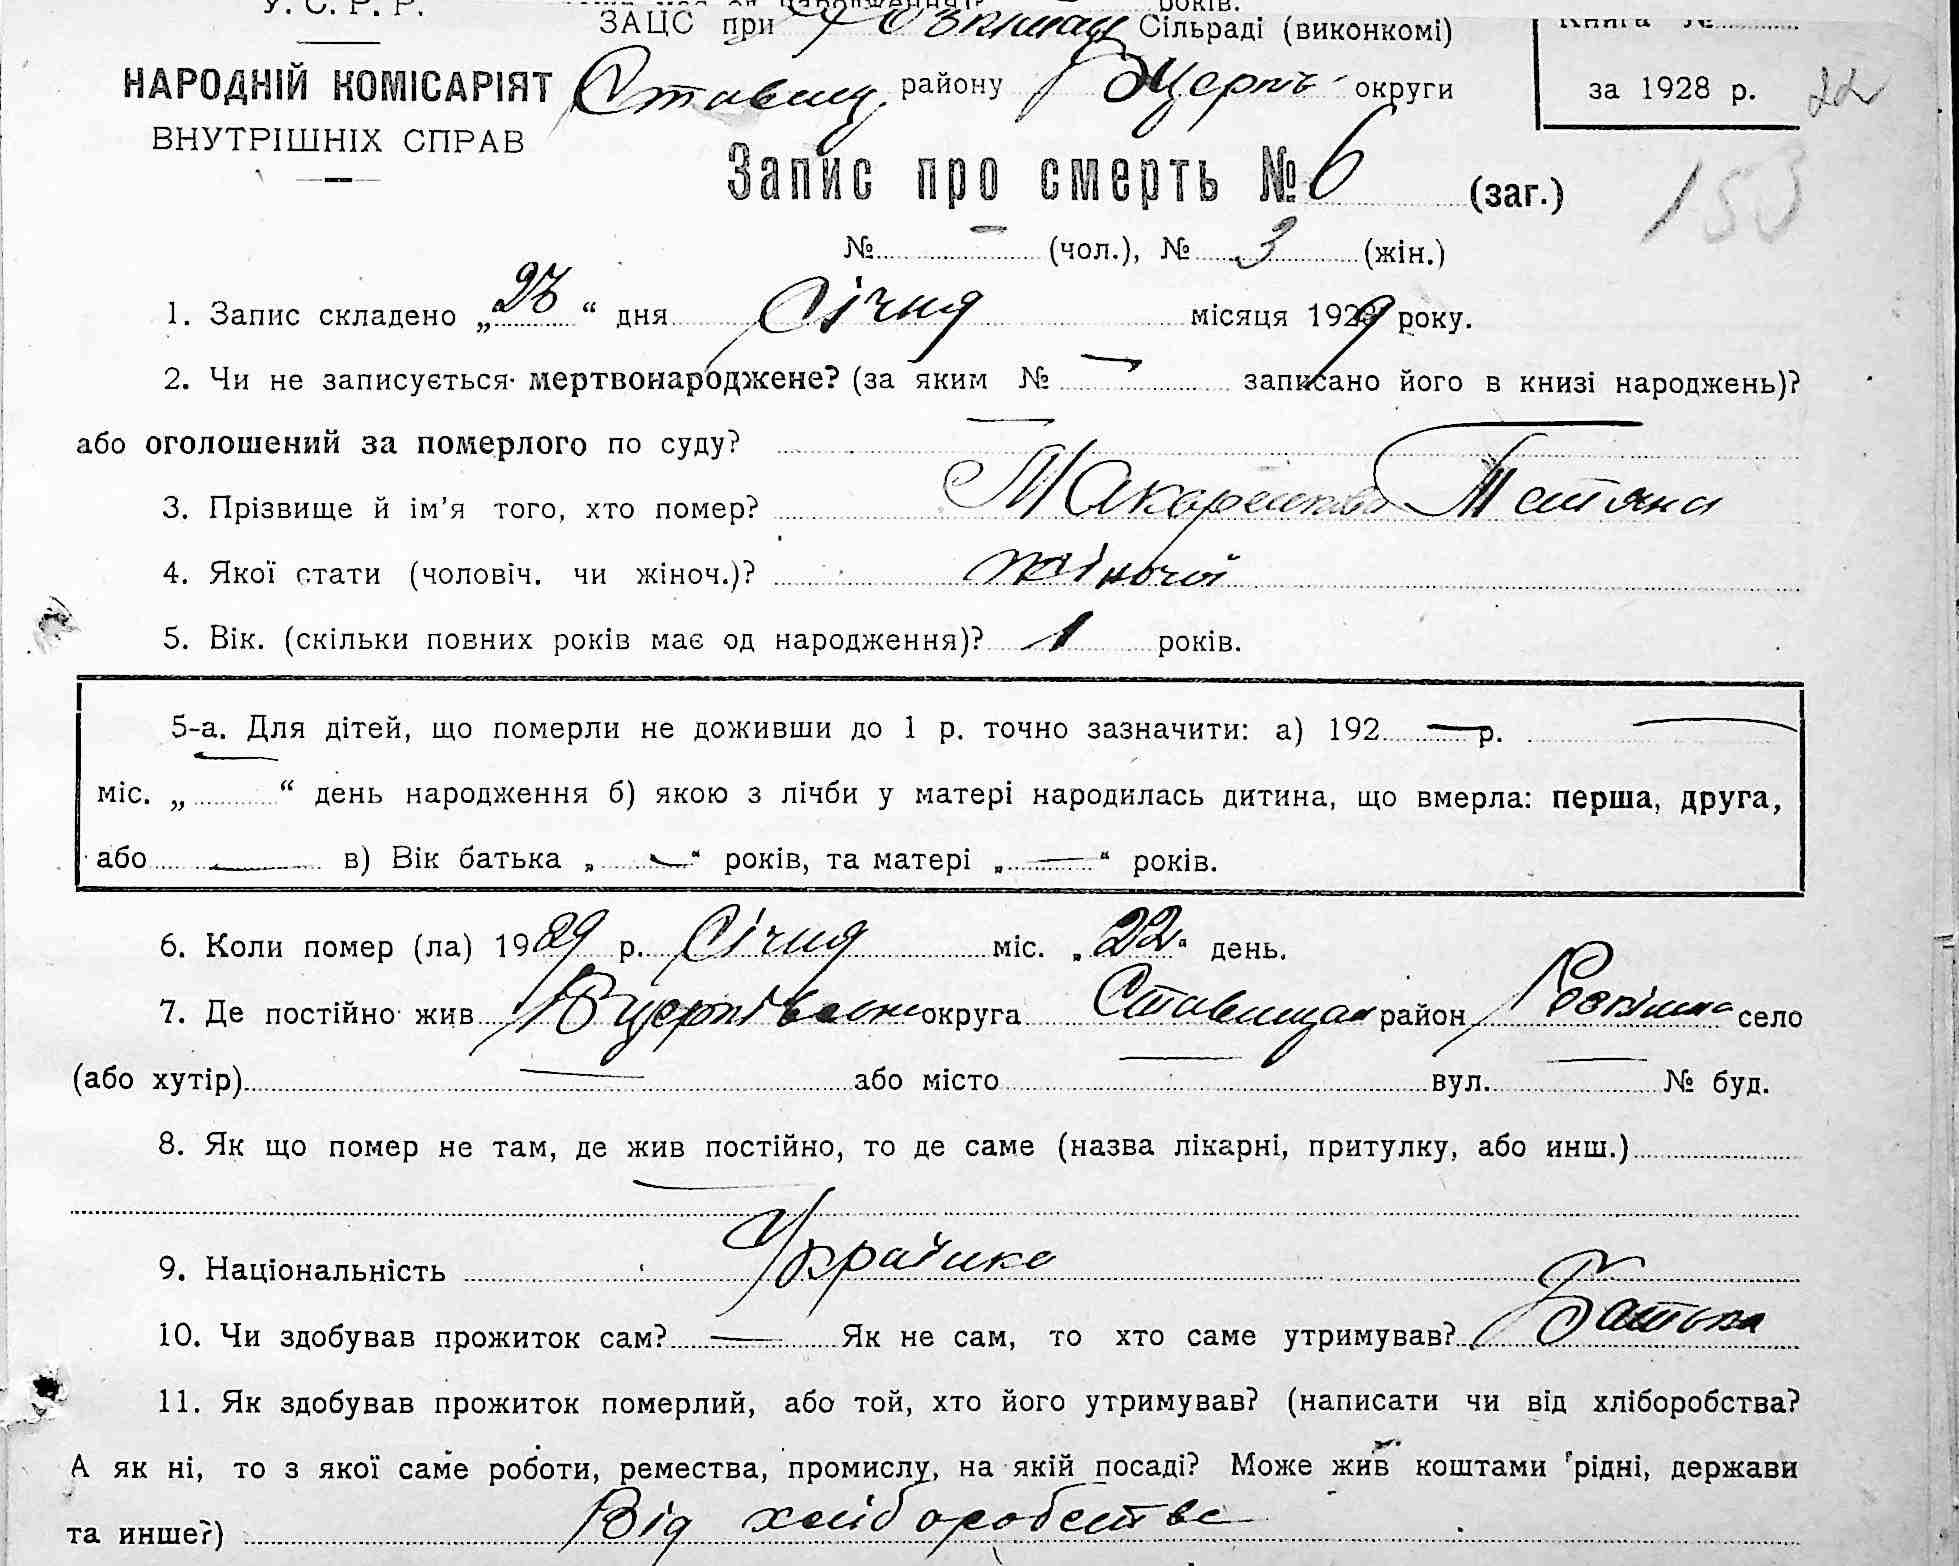 У. С. Р. Р.
ЗАЦС при Розкішна Сільраді (виконкомі)
Книга №
НАРОДНІЙ КОМІСАРІЯТ
ВНУТРІШНІХ СПРАВ
Ставищ. району БЦерків округи
за 1928 р.
22
Запис про смерть № 6 (заг.)
153
№ — (чол.), № 3 (жін.)
1. Запис складено „ “ дня Січня місяця 1929 року.
2. Чи не записується мертвонароджене? (за яким № — записано його в книзі народжень)?
або оголошений за померлого по суду? —
3. Прізвище й ім'я того, хто помер? Тетяна
4. Якої стати (чоловіч. чи жіноч.)? жіночої
5. Вік. (скільки повних років має од народження)? 1 років.
5-а. Для дітей, що померли не доживши до 1 р. точно зазначити: а) 192 — р. —
міс. „ — “ день народження б) якою з лічби у матері народилась дитина, що вмерла: перша, друга,
або — в) Вік батька „ — “ років, та матері „ — “ років.
6. Коли помер (ла) 1929 р. Січня міс. „22“ день.
7. Де постійно жив БЦерківська округа Ставищан район Розкішна село
(або хутір) — або місто — вул. — № буд.
8. Як що помер не там, де жив постійно, то де саме (назва лікарні, притулку, або инш.)
—
9. Національність Українка
10. Чи здобував прожиток сам? — Як не сам, то хто саме утримував? Батько
11. Як здобував прожиток померлий, або той, хто його утримував? (написати чи від хліборобства?
А як ні, то з якої саме роботи, ремества, промислу, на якій посаді? Може жив коштами рідні, держави
та инше?) Від хліборобства